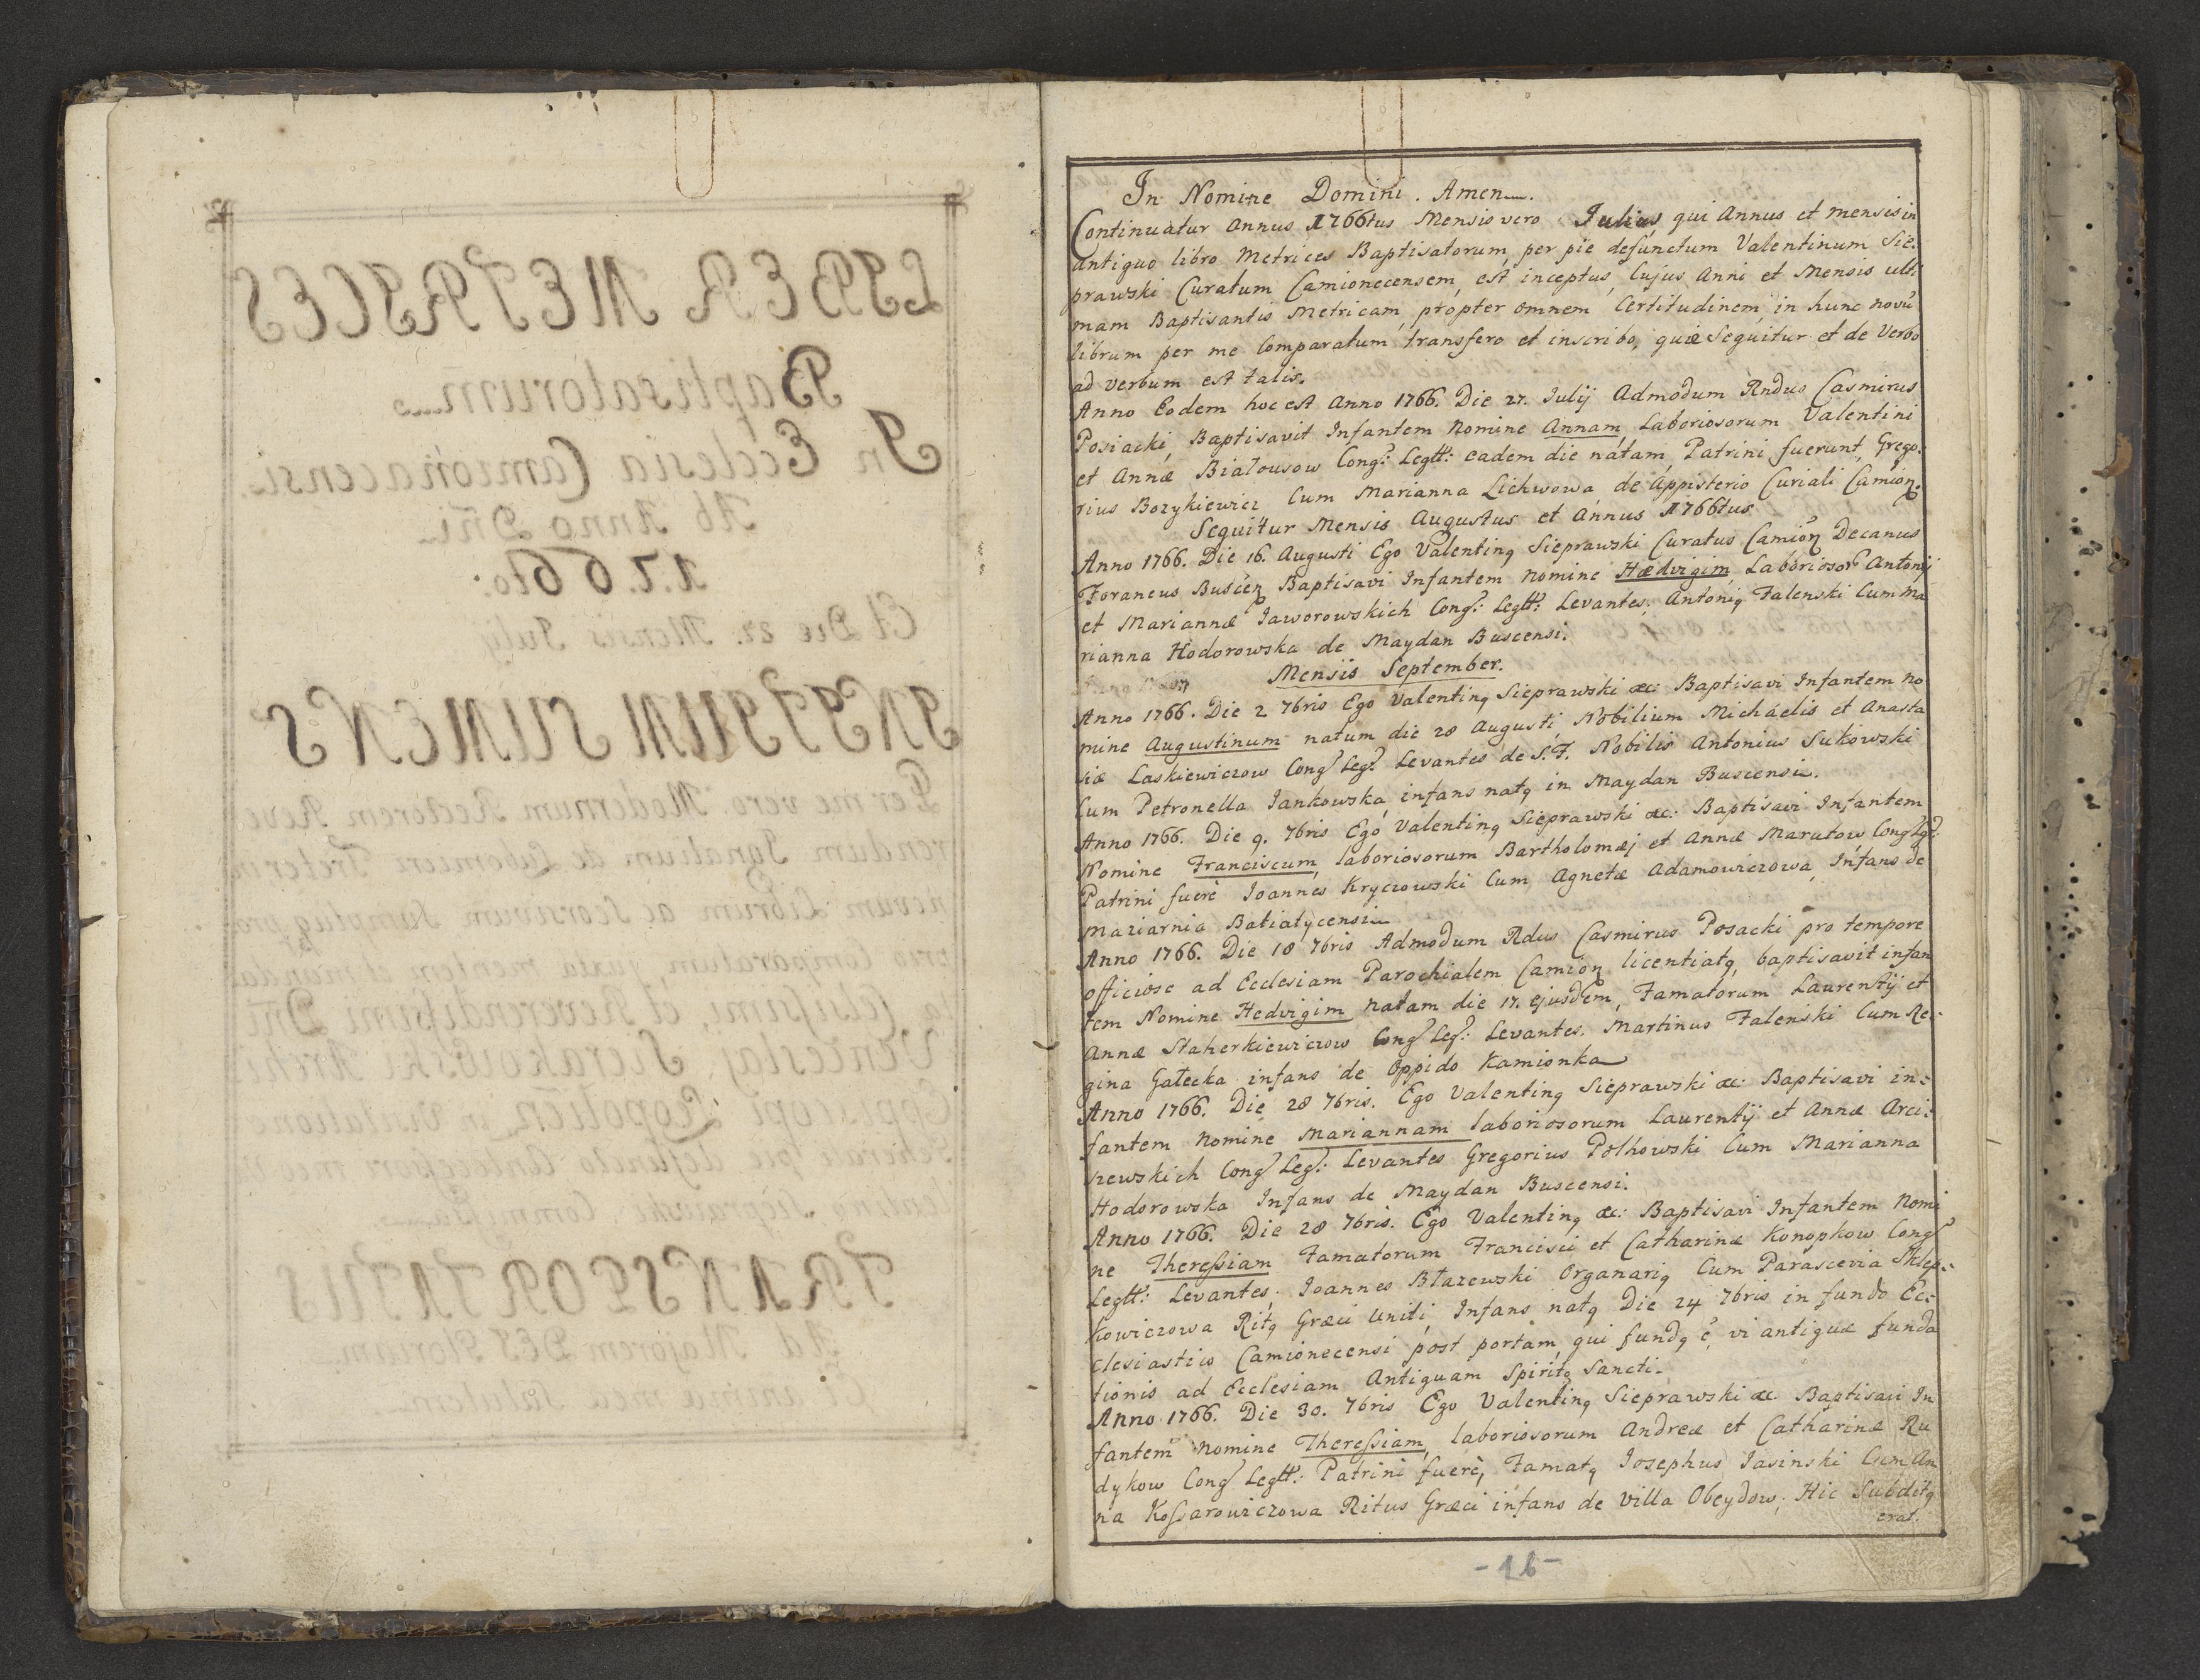 In Nomine Domini. Amen.
Continuatur Annus 1766tus Mensis vero Julius, qui Annus et mensis in
antiquo libro Metrices Baptisatorum, per pie defunctum Valentinum Sie-
prawski Curatum Camionecensem, est inceptus, Cujus Anni et Mensis ulti
mam Baptisantis Metricam, propter omnem Certitudinem, in hunc novũ
librum per me Comparatum transfero et inscribo, quæ Sequitur et de Verbo
ad verbum est talis.
Anno Eodem hoc est Anno 1766. Die 27. Julij Admodum Rndus Casmirus
Posiacki, Baptisavit Infantem Nomine Annam, Laboriosorum Valentini
et Annæ Białousow Cong: Legtt: eadem die natam, Patrini fuerunt, Grego-
rius Bozykiewicz Cum Marianna Lichwowa, de Appisterio Curiali Camionꝫ.
Sequitur Mensis Augustus et Annus 1766tus
Anno 1766. Die 16. Augusti Ego Valentinꝗ Sieprawski Curatus Camionꝫ Decanus
Foraneus Buscenꝫ Baptisavi Infantem Nomine Hædvigim, Laborioso~ Antonij
et Mariannæ Jaworowskich Cong: Legtt: Levantes, Antoniꝗ Falenski Cum Ma
rianna Hodorowska de Maydan Buscensi.
Mensis September.
Anno 1766. Die 2 7bris Ego Valentinꝗ Sieprawski &c: Baptisavi Infantem No
mine Augustinum natum die 28 Augusti, Nobilium Michaelis et Anasta
siæ Laskiewiczow Cong Leg: Levantes de S. F. Nobilis Antonius Sukowski
Cum Petronella Jankowska, infans natꝗ in Maydan Buscensi.
Anno 1766. Die 9. 7bris Ego Valentinꝗ Sieprawski &c: Baptisavi Infantem
Nomine Franciscum, laboriosorum Bartholomæj et Annæ Marutow Cong Lg:
Patrini fuerè Joannes Kryczowski Cum Agnetæ Adamowiczowa, Infans de
Maziarnia Batiatycensi
Anno 1766. Die 18 7bris Admodum Rdus Casmirus Posacki pro tempore
officiose ad Ecclesiam Parochialem Camionꝫ licentiatꝗ, baptisavit infan
tem Nomine Hedvigim natam die 17. ejusdem, Famatorum Laurentÿ et
Annæ Staherkiewiczow Cong Leg: Levantes. Martinus Falenski Cum Re-
gina Gałecka infans de Oppido Kamionka
Anno 1766. Die 28 7bris. Ego Valentinꝗ Sieprawski &c: Baptisavi in-
fantem Nomine Mariannam laboriosorum Laurentÿ et Annæ Arci-
szewskich Cong Leg: Levantes Gregorius Polhowski Cum Marianna
Hodorowska Infans de Maydan Buscensi.
Anno 1766. Die 28 7bris. Ego Valentinꝗ &c: Baptisavi Infantem Nomi
ne Theressiam Famatorum Francisci et Catharinæ Konopkow Cong
Legtt: Levantes. Joannes Błazewski Organariꝗ Cum Parascevia Sklep-
kowiczowa Ritꝗ Græci Uniti, Infans natꝗ Die 24 7bris in fundo Ec-
clesiastico Camionecensi post portam, qui fundꝗ ẽ, vi antiquæ funda
tionis ad Ecclesiam Antiquam Spiritꝗ Sancti.
Anno 1766. Die 30. 7bris Ego Valentinꝗ Sieprawski &c Baptisavi In
fantem Nomine Theressiam, laboriosorum Andreæ et Catharinæ Ru
dykow Cong Legtt: Patrini fuerè, Famatꝗ Josephus Jasinski Cum An
na Kossarowiczowa Ritus Græci infans de Villa Obeydow, Hic Subditꝗ
erat.
-16-
LIBER METRICES
Baptisatorum
In Ecclesia Camionacensi.
Ab Anno Dñi
1766to.
Et Die 27. Mensis Julij
INITIUM SUMENS
Per me vero Modernum Rectorem Reve
rendum Ignatium de Lubomierz Treterum
novum Librum ac Scorsivum Sumptuꝗ pro
prio Comparatum, juxta mentem et manda
ta Celsissimi, et Reverendissimi Dñi
Venceslaj Sierakowski Archi
TRANSPORTATUS
Ad Majorem DEI Gloriam